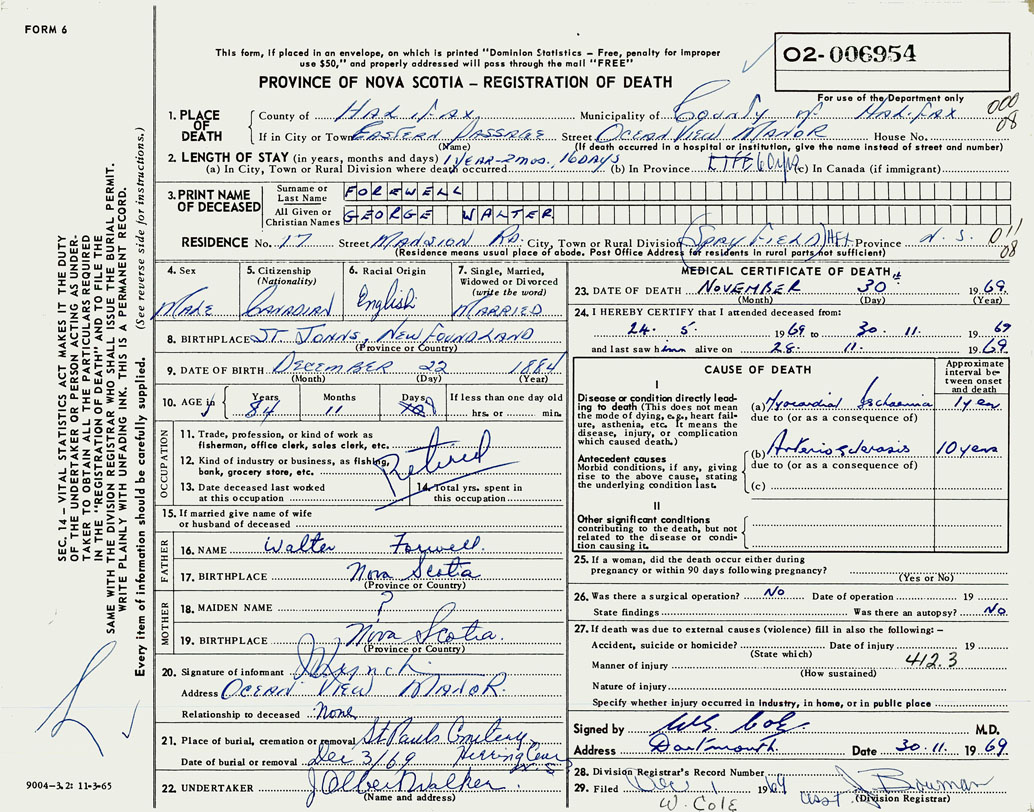 FORM 6
This form, if placed in an envelope, on which is printed "Dominion Statistics – Free, penalty for improper
use $50," and properly addressed will pass through the mail "FREE"
PROVINCE OF NOVA SCOTIA – REGISTRATION OF DEATH
02-006954
For use of the Department only
000
08
SEC. 14 – VITAL STATISTICS ACT MAKES IT THE DUTY
OF THE UNDERTAKER OR PERSON ACTING AS UNDER-
TAKER TO OBTAIN ALL THE PARTICULARS REQUIRED
IN THE "REGISTRATION OF DEATH" AND TO FILE THE
SAME WITH THE DIVISION REGISTRAR WHO SHALL ISSUE THE BURIAL PERMIT.
WRITE PLAINLY WITH UNFADING INK. THIS IS A PERMANENT RECORD.
Every item of information should be carefully supplied. (See reverse side for instructions.)
1. PLACE OF DEATH
County of Halifax Municipality of County of Halifax
If in City or Town Eastern Passage Street Ocean View Manor House No.
(Name) (If death occurred in a hospital or institution, give the name instead of street and number)
2. LENGTH OF STAY (in years, months and days) 1 year-2 mos. 16 days
(a) In City, Town or Rural Division where death occurred (b) In Province Life 60 yrs (c) In Canada (if immigrant)
3. PRINT NAME OF DECEASED
Surname or Last Name FOREWELL
All Given or Christian Names GEORGE WALTER
RESIDENCE No. 17 Street Mansion Rd. City, Town or Rural Division (Spryfield) Hfx Province N.S. 011
08
(Residence means usual place of abode. Post Office Address for residents in rural parts not sufficient)
4. Sex
Male
5. Citizenship
(Nationality)
Canadian
6. Racial Origin
English
7. Single, Married,
Widowed or Divorced
(write the word)
Married
8. BIRTHPLACE St. Johns, Newfoundland
(Province or Country)
9. DATE OF BIRTH December 22 1884
(Month) (Day) (Year)
10. AGE in Years Months Days If less than one day old
84 11 hrs. or min.
OCCUPATION
11. Trade, profession, or kind of work as
fisherman, office clerk, sales clerk, etc.
12. Kind of industry or business, as fishing,
bank, grocery store, etc.
Retired
13. Date deceased last worked
at this occupation
14. Total yrs. spent in
this occupation
15. If married give name of wife
or husband of deceased
FATHER
16. NAME Walter Forwell.
17. BIRTHPLACE Nova Scotia
(Province or Country)
MOTHER
18. MAIDEN NAME ?
19. BIRTHPLACE Nova Scotia.
(Province or Country)
20. Signature of informant Lynch.
Address Ocean View Manor.
Relationship to deceased None
21. Place of burial, cremation or removal St Pauls Cemetery
Date of burial or removal Dec 3/69 Herring Cove
N.S.
22. UNDERTAKER J Albert Walker
(Name and address)
MEDICAL CERTIFICATE OF DEATH
23. DATE OF DEATH November 30 1969.
(Month) (Day) (Year)
24. I HEREBY CERTIFY that I attended deceased from:
24. 5. 1969 to 30. 11. 1969
and last saw him alive on 28. 11. 1969.
CAUSE OF DEATH
Approximate
interval be-
tween onset
and death
I
Disease or condition directly lead-
ing to death (This does not mean
the mode of dying, e.g., heart fail-
ure, asthenia, etc. It means the
disease, injury, or complication
which caused death.)
(a) Myocardial Ischaemia 1 year
due to (or as a consequence of)
Antecedent causes
Morbid conditions, if any, giving
rise to the above cause, stating
the underlying condition last.
(b) Arteriosclerosis 10 years
due to (or as a consequence of)
(c)
II
Other significant conditions
contributing to the death, but not
related to the disease or condi-
tion causing it.
25. If a woman, did the death occur either during
pregnancy or within 90 days following pregnancy?
(Yes or No)
26. Was there a surgical operation? No Date of operation 19
State findings Was there an autopsy? No
27. If death was due to external causes (violence) fill in also the following: –
Accident, suicide or homicide? Date of injury 19
(State which)
Manner of injury 412.3
(How sustained)
Nature of injury
Specify whether injury occurred in industry, in home, or in public place
Signed by W.G. Cole M.D.
Address Dartmouth Date 30.11. 1969.
28. Division Registrar's Record Number
29. Filed Dec 1 1969 J. Bowman
W. Cole Asst (Division Registrar)
9004-3,2: 11-3-65